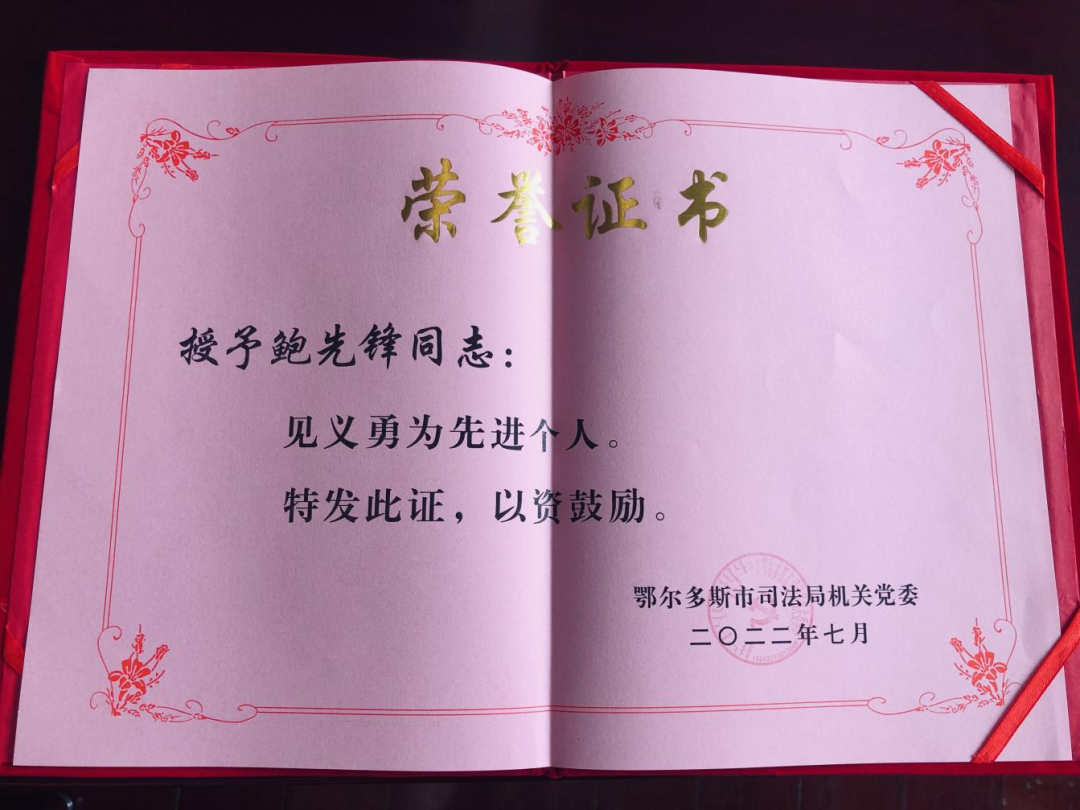 荣誉证书
授予鲍先锋同志：
见义勇为先进个人。
特发此证，以资鼓励。
鄂尔多斯市司法局机关党委
二〇二二年七月